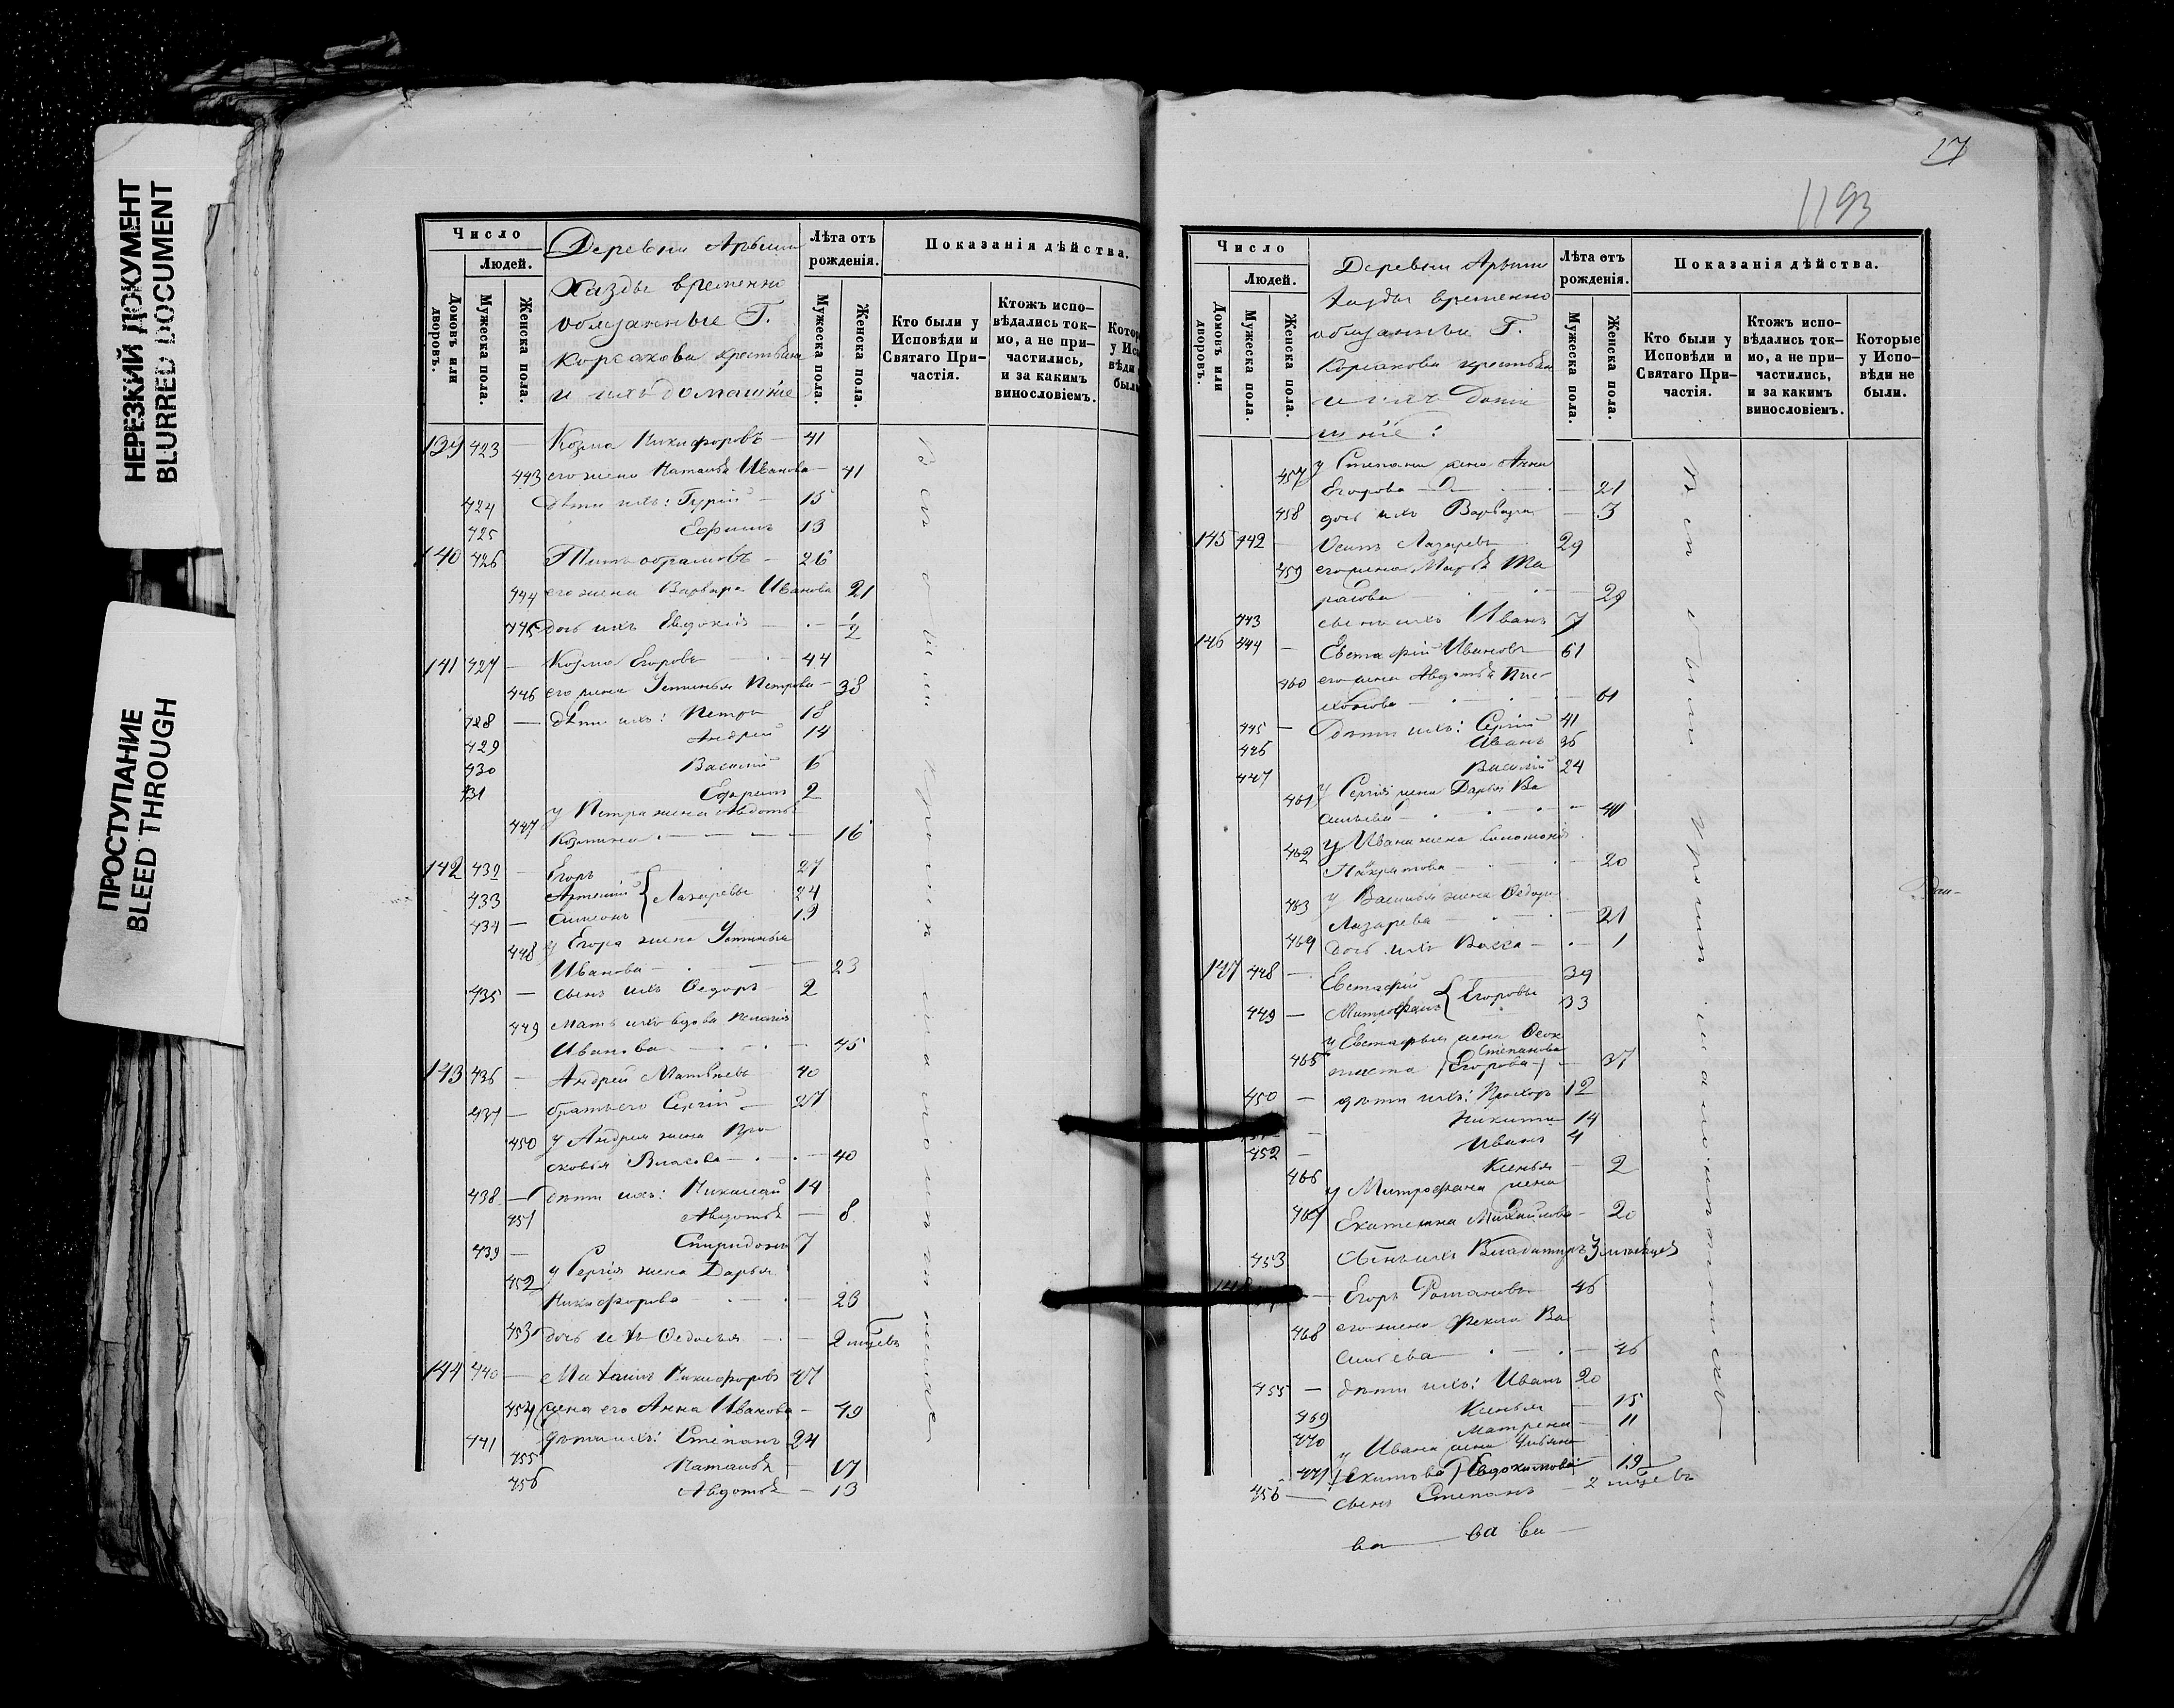 НЕРЕЗКИЙ ДОКУМЕНТ
BLURRED DOCUMENT
ПРОСТУПАНИЕ
BLEED THROUGH
Число
Людей.
Домовъ или дворовъ.
Мужеска пола.
Женска пола.
Деревни
временно
Г.
и ихъ домашніе
Лѣта отъ рожденія.
Мужеска пола.
Женска пола.
Показанія дѣйства.
Кто были у Исповѣди и Святаго При-частія.
Ктожъ испо-вѣдались ток-мо, а не при-частились, и за какимъ винословіемъ.
139 423 — Козма Никифоровъ — 41
443 его жена Наталья Иванова — 41
424 дѣти ихъ: Гурій — 15
425 Ефимъ 13
140 426 Титъ — 26
444 его жена Варвара Иванова 21
дочь ихъ Евдокія — 1/2
141 427 — Козма Егоровъ — 44
446 его жена Устинья Петрова — 38
428 — дѣти ихъ: Петръ 18
429 Андрей 14
430 Василій 6
431 Ефремъ 2
447 у Петра жена Авдотья
Козмина — 16
142 432 — Егоръ 27
433 Артемій } Лазаревы 24
434 — Симеонъ 19
448 у Егора жена Устинья
Иванова — 23
435 — сынъ ихъ Ѳедоръ 2
449 мать ихъ вдова Пелагія
Иванова — 45
143 436 — Андрей Матвѣевъ 40
437 — братъ его Сергій — 27
450 у Андрея жена Пра-
сковья Власова — 40
438 — дѣти ихъ: Николай 14
451 Авдотья — 8
439 — Спиридонъ 7
452 у Сергія жена Дарья
Никифорова — 23
453 дочь ихъ Ѳедосья — 2 мцевъ
144 440 — Михаилъ Никифоровъ 47
454 жена его Анна Иванова — 49
441 дѣти ихъ: Степанъ 24
455 Наталья — 17
456 Авдотья — 13
17
1193
Число
Людей.
Домовъ или дворовъ.
Мужеска пола.
Женска пола.
Деревни
временно
Г.
Лѣта отъ рожденія.
Мужеска пола.
Женска пола.
Показанія дѣйства.
Кто были у Исповѣди и Святаго При-частія.
Ктожъ испо-вѣдались ток-мо, а не при-частились, и за какимъ винословіемъ.
Которые у Испо-вѣди не были.
457 у Степана жена Анна
Егорова — 21
458 дочь ихъ Варвара — 3
145 442 — Осипъ Лазаревъ 29
459 его жена Марья Та
расова — 29
443 сынъ ихъ Иванъ 7
146 444 — Евстафій Ивановъ 61
460 его жена Авдотья
— 61
445 — Дѣти ихъ: Сергій 41
446 Иванъ 36
447 Василій 24
461 у Сергія жена Дарья Ва
сильева —
462 у Ивана жена Соломонія
— 20
у Василья жена Ѳедора
Лазарева — 21
дочь ихъ Васса — 1
147 448 — Евстафій 39
449 — Митрофанъ } Егоровы 33
465 у Евстафья жена Ѳеок
Степанова
тиста (Егорова) — 37
450 — дѣти ихъ: Прохоръ 12
— Никита 14
452 — Иванъ 4
466 Ксенья — 2
у Митрофана жена
467 Екатерина Михайлова — 20
453 сынъ ихъ Владимиръ 3 мѣсяцев
— Егоръ Романовъ 46
468 его жена Фекла Ва
сильева — 46
455 — дѣти ихъ: Иванъ 20
469 Ксенья — 15
470 Матрена — 11
у Ивана жена Ульяна
471 (Екимова) Евдокимова — 19
456 — сынъ Степанъ — 2 мцевъ
ва — ва ва —